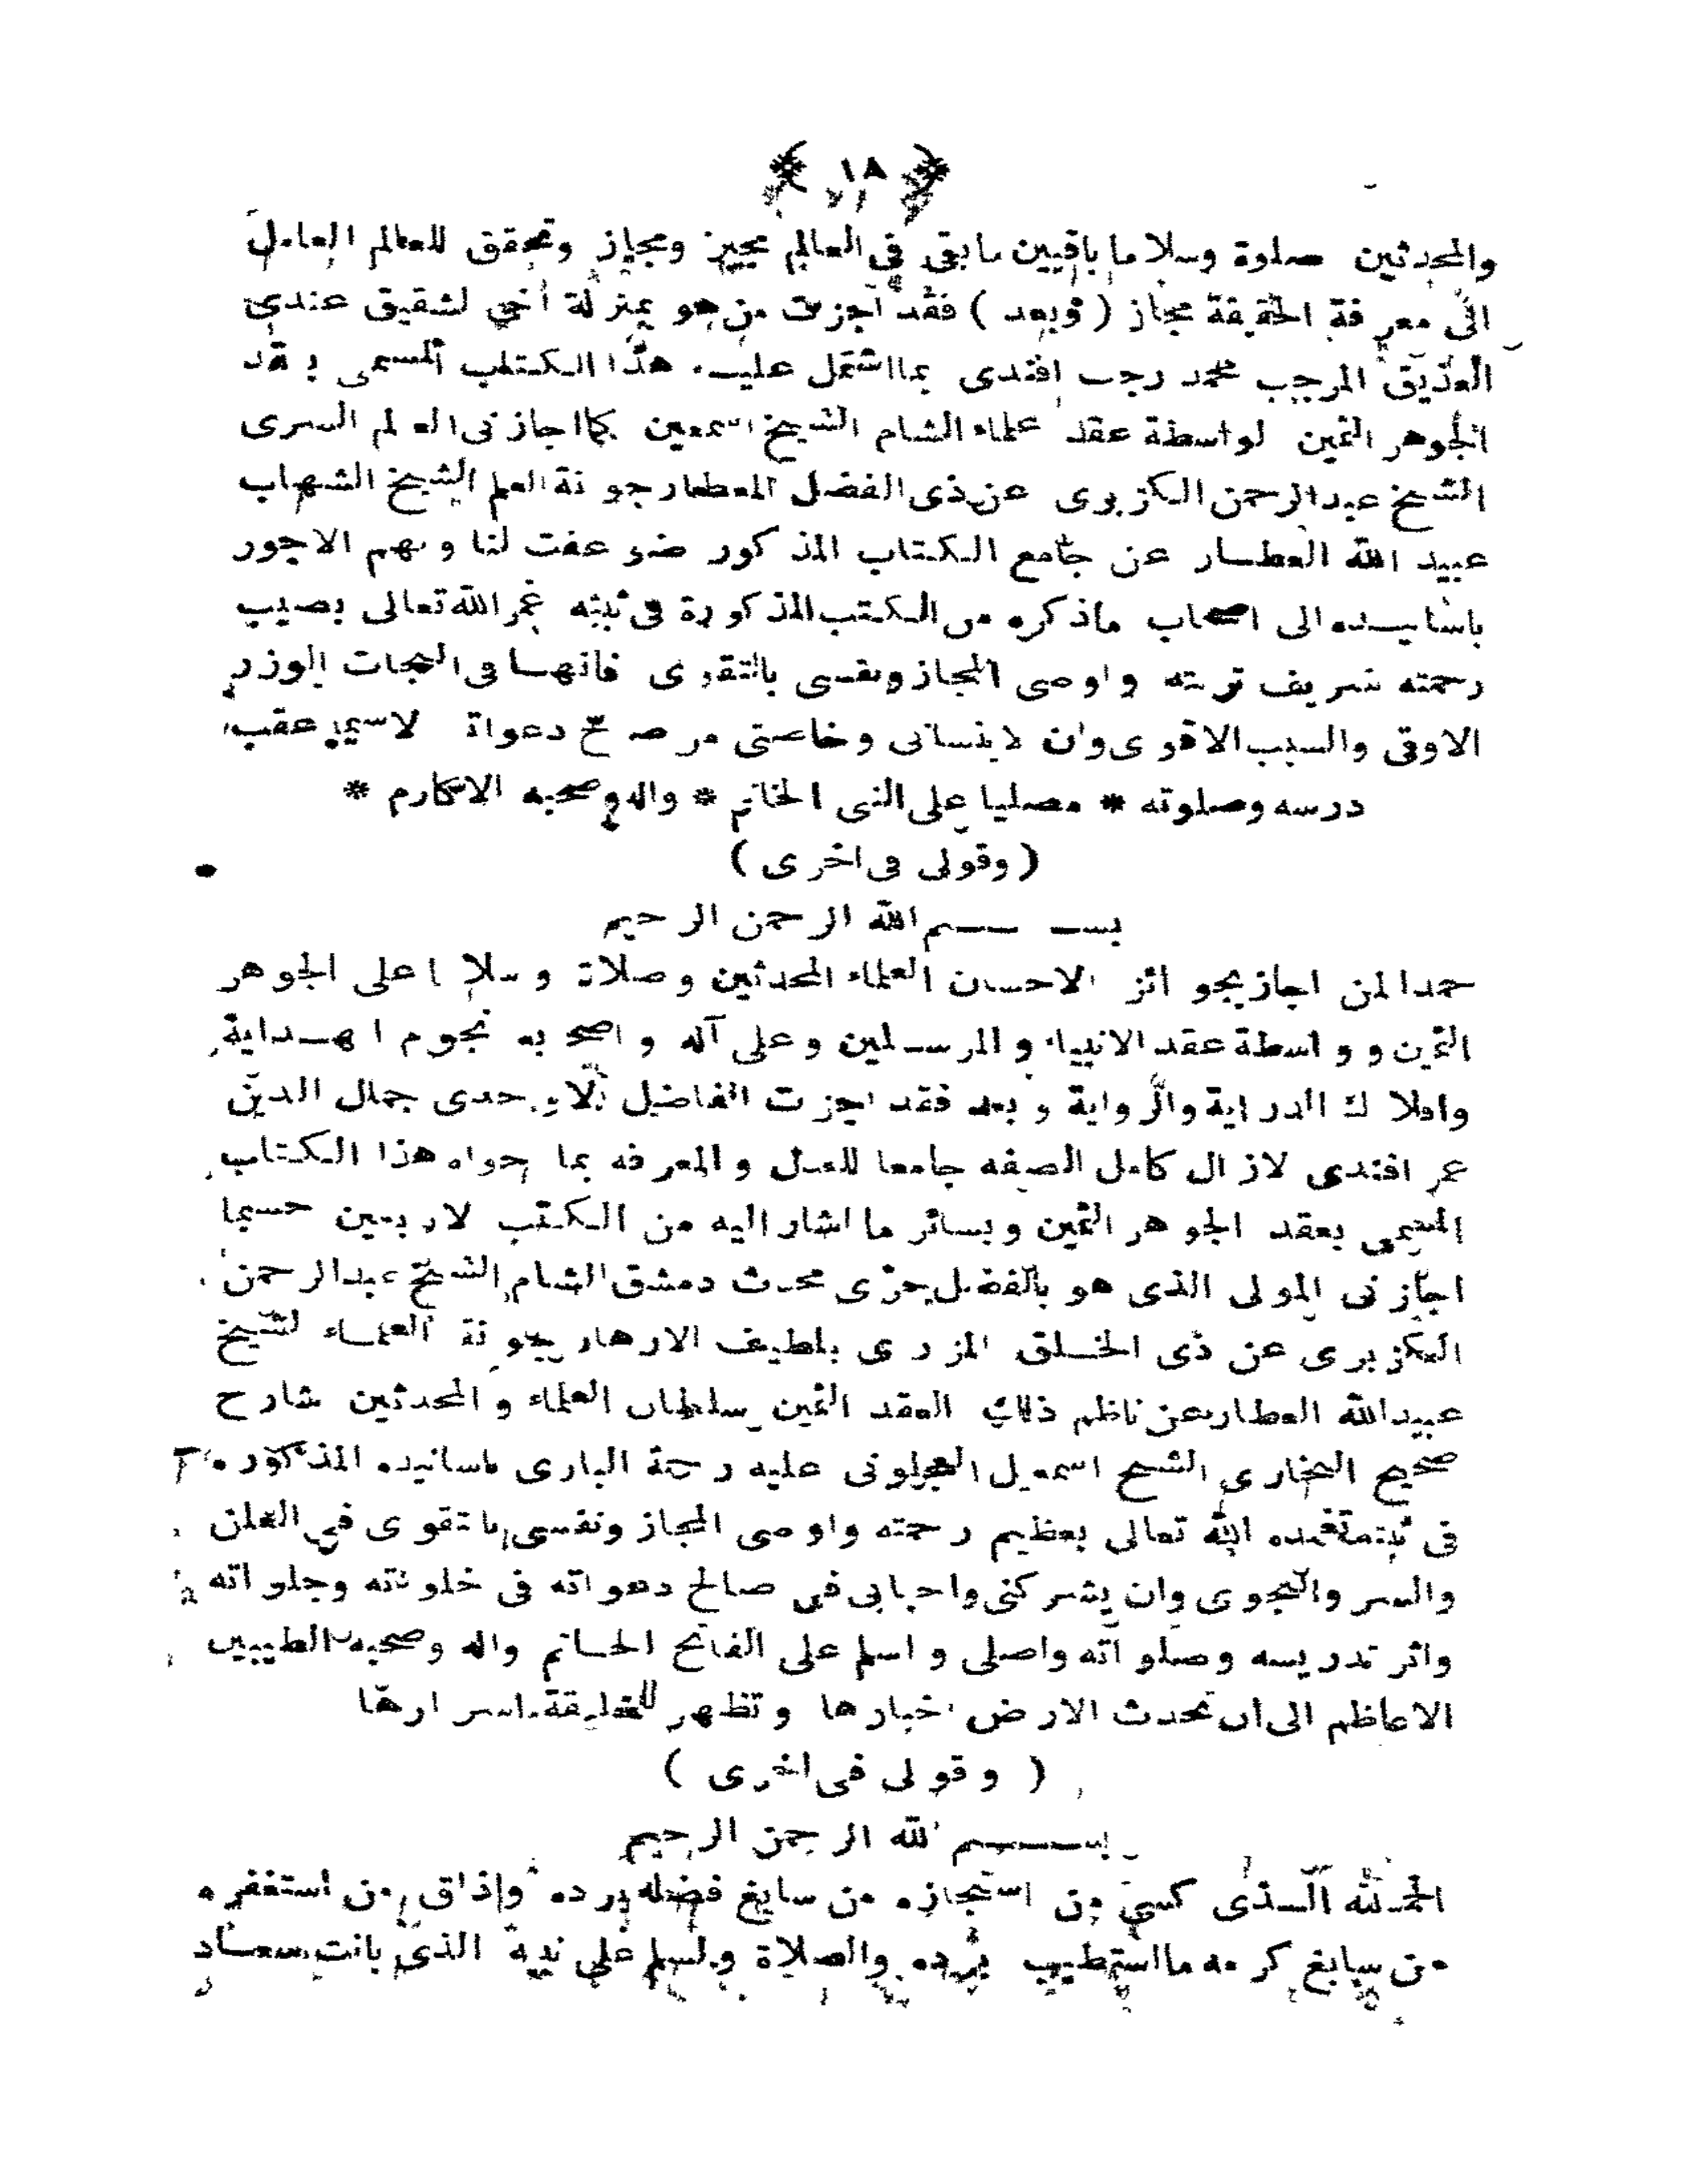 ﴿ ١٨ ﴾
والمحدثين صلوة وسلاما باقيين مابقى فى العالم مجيز ومجاز وتحقق للعالم العامل
الى معرفة الحقيقة مجاز ( وبعد ) فقد اجزت من هو بمنزلة اخى لشقيق عندى
العذيق المرجب محمد رجب افندى بمااشتمل عليه هذا الكتاب المسمى بعقد
الجوهر الثمين لواسطة عقد علماء الشام الشيخ اسمعيل كمااجازنى العالم السرى
الشيخ عبدالرحمن الكزبرى عن ذى الفضل المعطار جونة العلم الشيخ الشهاب
عبيد الله العطار عن جامع الكتاب المذكور ضوعفت لنا ولهم الاجور
باسانيده الى اصحاب ماذكره من الكتب المذكورة فى ثبته غمر الله تعالى بصيب
رحمته شريف تربته واوصى المجاز ونفسى بالتقوى فانها فى النجات الوزر
الاوقى والسبب الاقوى وان لاينسانى وخاصتى من صالح دعواته لاسيما عقب
درسه وصلوته * مصليا على النبى الخاتم * واله وصحبه الاكارم *
( وقولى فى اخرى )
بســـــم الله الرحمن الرحيم
حمدا لمن اجاز بجوائز الاحسان العلماء المحدثين وصلاة وسلاما على الجوهر
الثمين وواسطة عقد الانبياء والمرسلين وعلى آله واصحابه نجوم الهداية
وافلاك الدراية والرواية وبعد فقد اجزت الفاضل الاوحدى جمال الدين
عمر افندى لازال كامل الصفه جامعا للعدل والمعرفه بما حواه هذا الكتاب
المسمى بعقد الجوهر الثمين وبسائر ما اشار اليه من الكتب لاربعين حسبما
اجازنى المولى الذى هو بالفضل حرى محدث دمشق الشام الشيخ عبدالرحمن
الكزبرى عن ذى الخلق المزرى بلطيف الازهار جونة العلماء لشيخ
عبيدالله العطار عن ناظم ذلك العقد الثمين سلطان العلماء والمحدثين شارح
صحيح البخارى الشيخ اسمعيل العجلونى عليه رحمة البارى باسانيده المذكوره
فى ثبته تغمده الله تعالى بعظيم رحمته واوصى المجاز ونفسى بالتقوى فى العلن
والسر والنجوى وان يشركنى واحبابى فى صالح دعواته فى خلوته وجلواته
واثر تدريسه وصلواته واصلى واسلم على الفاتح الخاتم واله وصحبه الطيبين
الاعاظم الى ان تحدث الارض اخبارها وتظهر للخليقة اسرارها
( وقولى فى اخرى )
بســـــم الله الرحمن الرحيم
الحمدلله الـذى كسى من استجازه من سابغ فضله برده واذاق من استغفره
من سابغ كرمه مااستطيب برده والصلاة ولسلم على نبيه الذى بانت سعاد